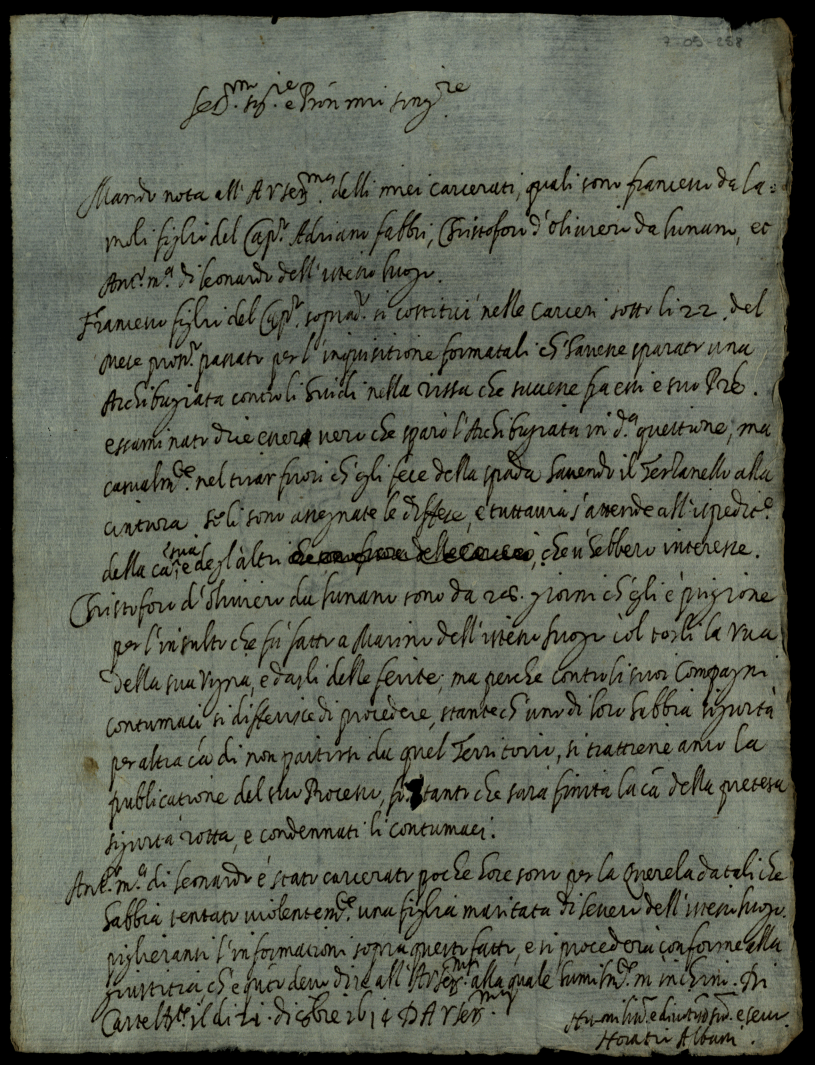 7-05-258
Ser.mo sig.re e Prõn mio sing.re
Mando nota all' A V Ser.ma delli miei carcerati, quali sono francesco da la=
moli figlio del Cap.o Adriano fabbri, Christoforo d'oliviero da lunano, et
Ant.o m.a di leonardo dell' istesso luogo.
Francesco figlio del Cap.o soprad.o si costitui nelle carceri sotto li 22. del
mese pross.o passato per l'inquisitione formatali ch'havesse sparato una
Archibugiata contro li Guidi nella rissa che successe fra essi e suo Pr̃e.
essaminato dice esser vero che sparò l'Archibugiata in d.a questione, ma
casualm.te nel tirar fuori ch'egli fece della spada havendo il Terzanello alla
cintura. se li sono assegnate le diffese, e tuttavia s'attende all' ispedit.e
della cã sua e degl'altri, che v'hebbero interesse.
Christoforo d'oliviero da lunano sono da 28. giorni ch'egli è prigione
per l'insulto che fù fatto a Marino dell' istesso luogo col torli la Uva
della sua vigna, e darli delle ferite; ma perche contro li suoi Compagni
contumaci si differisce di procedere, stante ch' uno di loro habbia sigurtà
per altra cã di non partirsi da quel Territorio, si trattiene anco la
publicatione del suo Processo, fin tanto che sarà finita la cã della pretesa
sigurtà rotta, e condennati li contumaci.
Ant.o m.a di leonardo è stato carcerato poche hore sono per la Querela datali che
habbia tentato violentem.te una figlia maritata di severo dell' istesso luogo.
piglieransi l'informationi sopra questo fatto, e si procederà conforme alla
giustitia ch'è quãto devo dire all' A V Ser.ma alla quale humilm.te m'inchino. Di
Castel d.te il dì 21. di 8bre 1614 D A V Ser.ma
Humiliss.o e divotiss.o ser.
Horatio Albani.